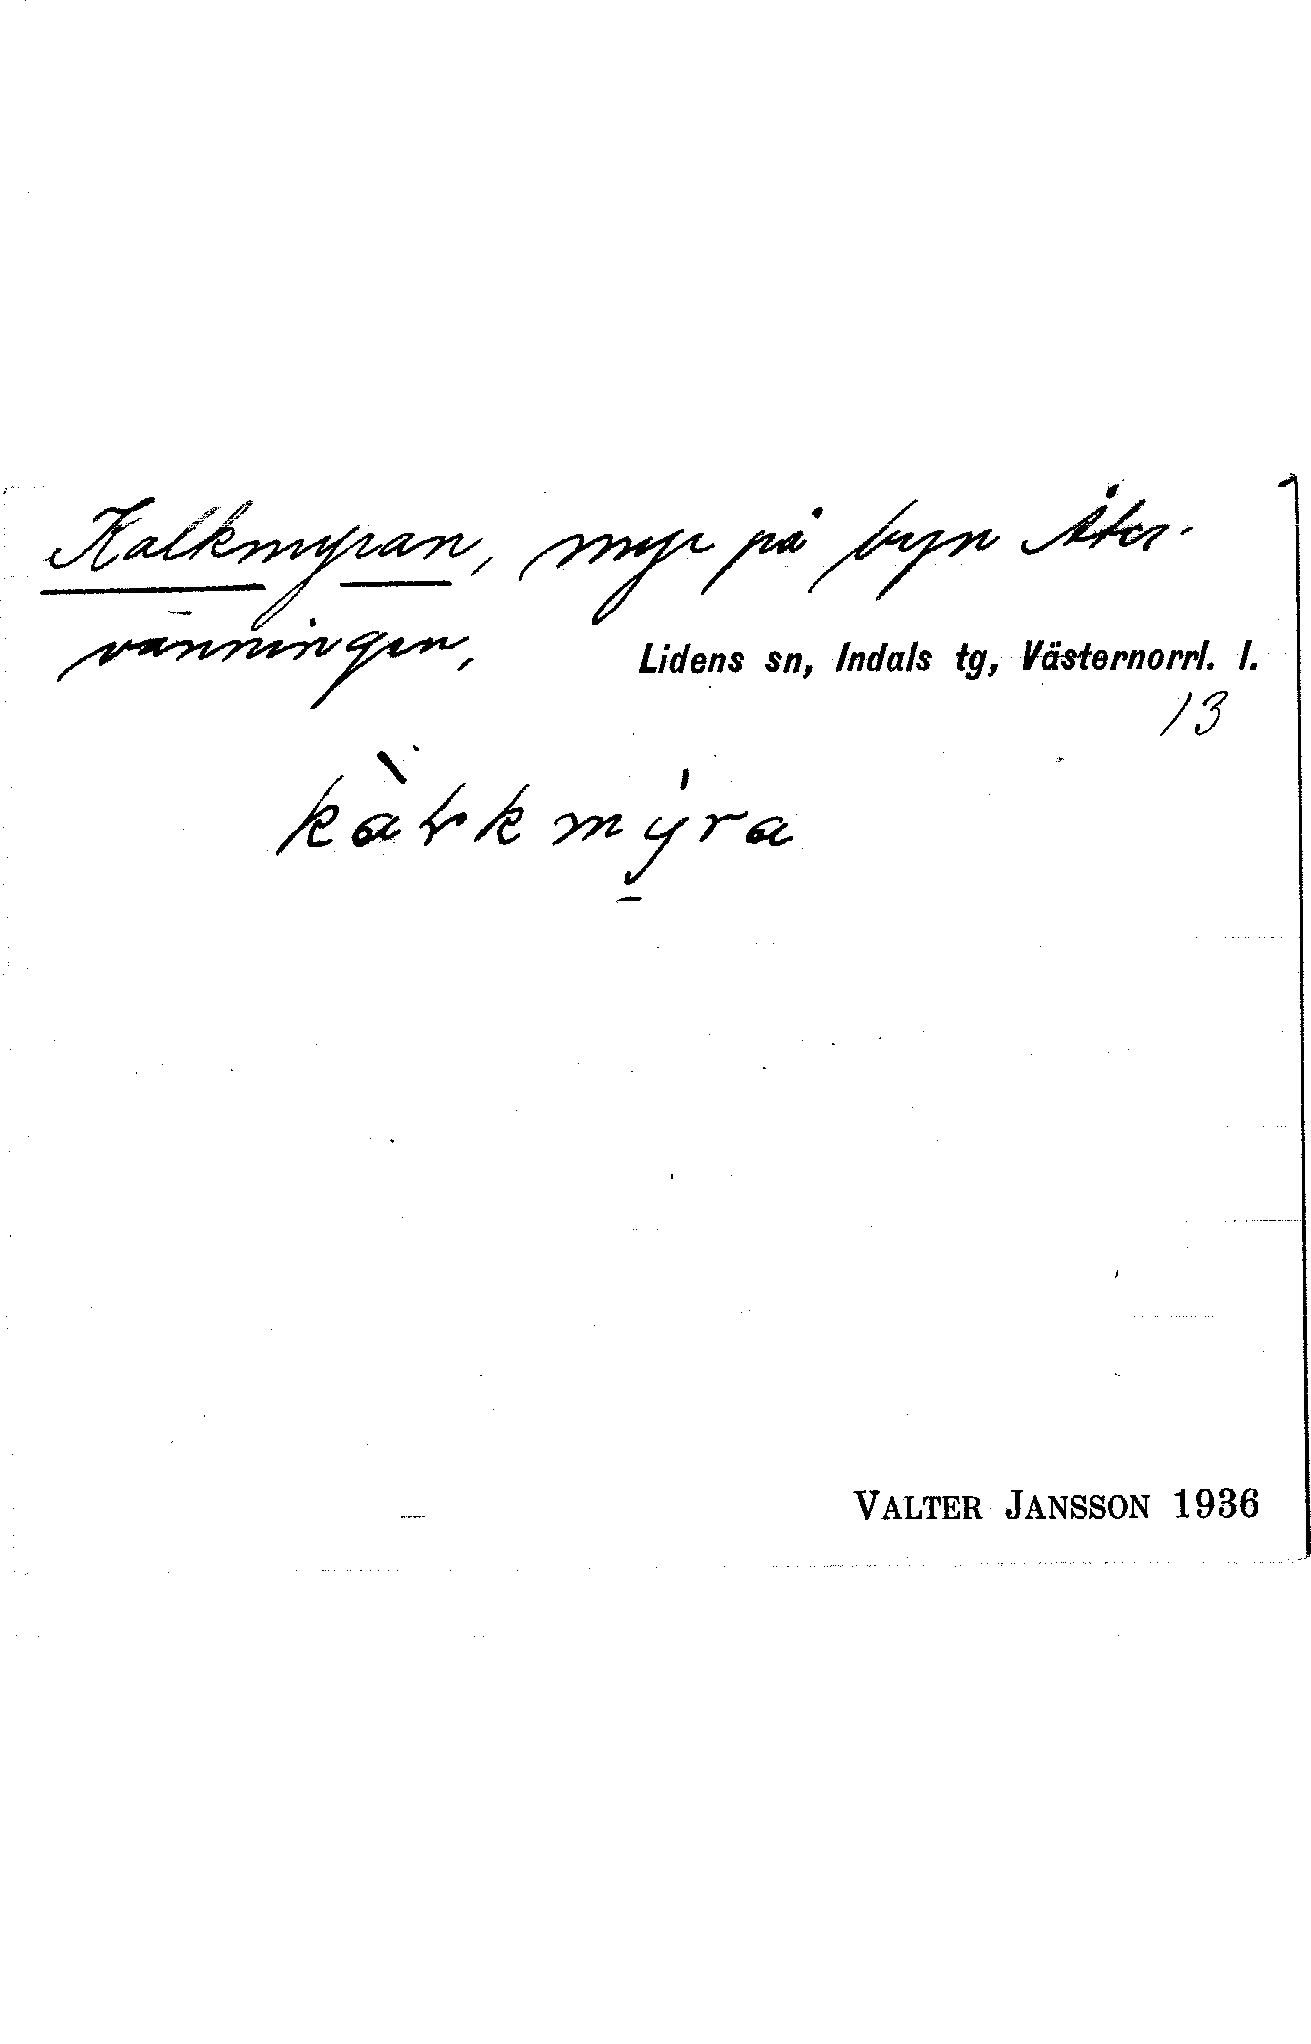 Kalkmyran, myr på byn Åter-
vänningen,
Lidens sn, Indals tg, Västernorrl. l.
13
VALTER JANSSON 1936